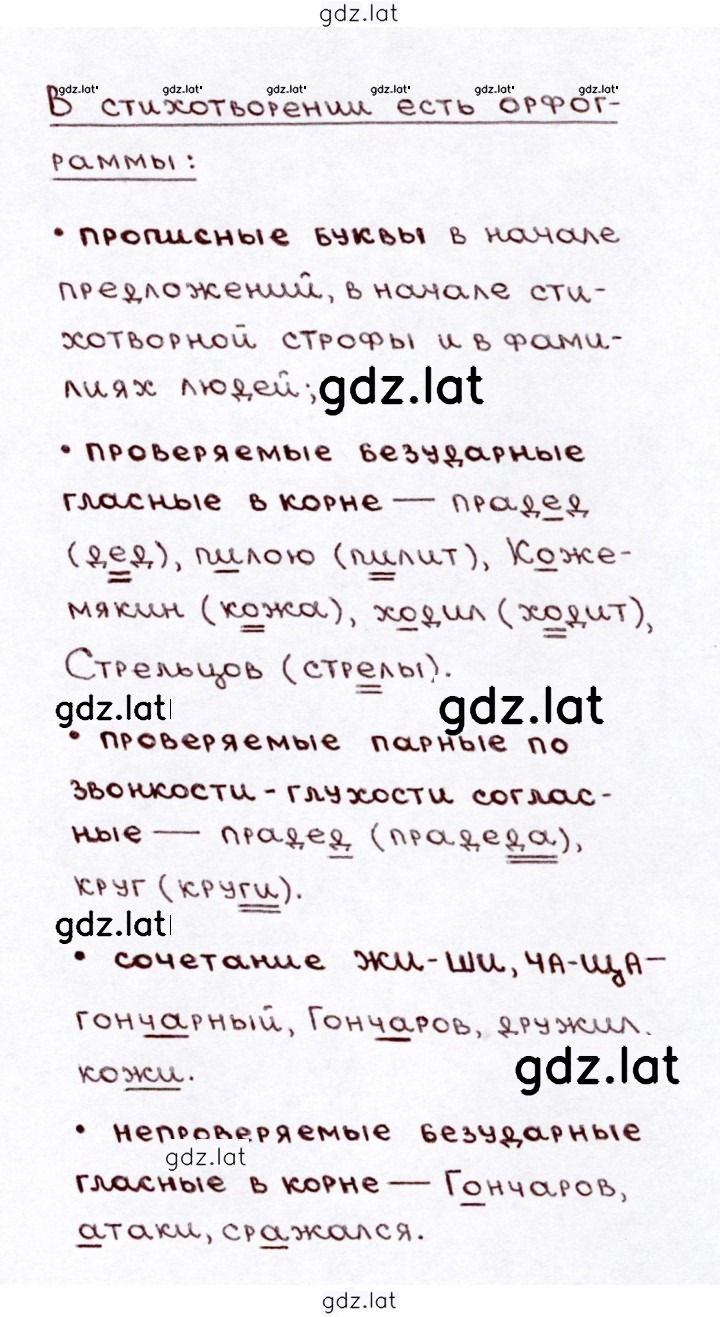 gdz.lat
gdz.lat' gdz.lat' gdz.lat' gdz.lat' gdz.lat' gdz.lat'
В стихотворении есть орфог-
раммы:
• прописные буквы в начале
предложений, в начале сти-
хотворной строфы и в фами-
лиях людей;
gdz.lat
• проверяемые безударные
гласные в корне — прадед
(дед), пилою (пилит), Коже-
мякин (кожа), ходил (ходит),
Стрельцов (стрелы).
gdz.lat gdz.lat
• проверяемые парные по
звонкости-глухости соглас-
ные — прадед (прадеда),
круг (круги).
gdz.lat
• сочетание жи-ши, ча-ща—
гончарный, Гончаров, дружил.
кожи.
gdz.lat
• непроверяемые безударные
gdz.lat
гласные в корне — Гончаров,
атаки, сражался.
gdz.lat